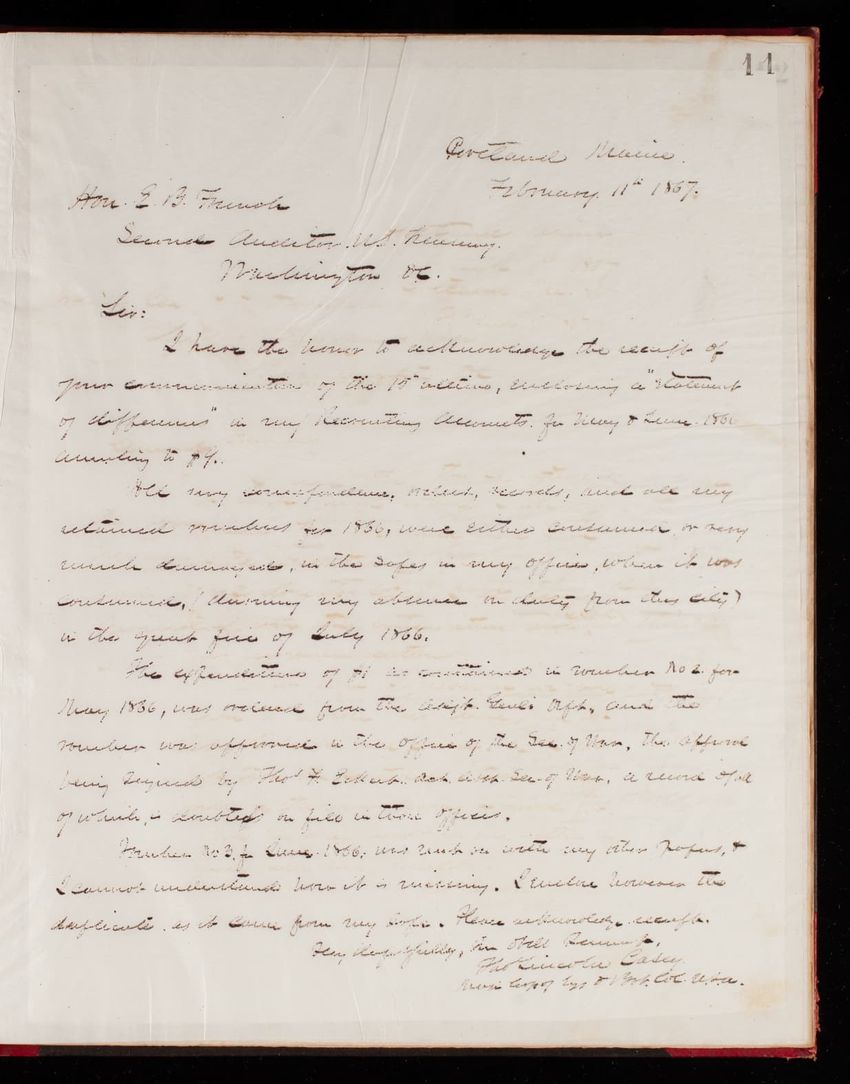 11
Portland Maine.
February 11th 1867.
Hon. E. B. French
Second Auditor U.S. Treasury.
Washington DC.
Sir:
I have the honor to acknowledge the receipt of
your communication of the 15th ultimo, enclosing a "Statement
of differences" in my Recruiting Accounts for May & June 1866
amounting to $9.
All my correspondence, orders, records, and all my
retained vouchers for 1866, were either consumed or very
much damaged, in the safes in my office, when it was
consumed, (during my absence on duty from this city)
in the great fire of July 1866.
The expenditure of $1 as contained in voucher No 2 for
May 1866, was ordered from the Adjt. Genl's Dept, and the
voucher was approved in the office of the Sec. of War, the approval
being signed by Thos T. Eckert Act. Asst. Sec. of War, a record
of which, is doubtless on file in those offices.
Voucher No 3 for June 1866, was sent on with my other papers, &
I cannot understand how it is missing. I enclose however the
duplicate as it came from my safe. Please acknowledge receipt.
Very Respectfully, Your Obdt Servant,
Thos Lincoln Casey
Major Corps of Engs & Bvt. Col. U.S.A.